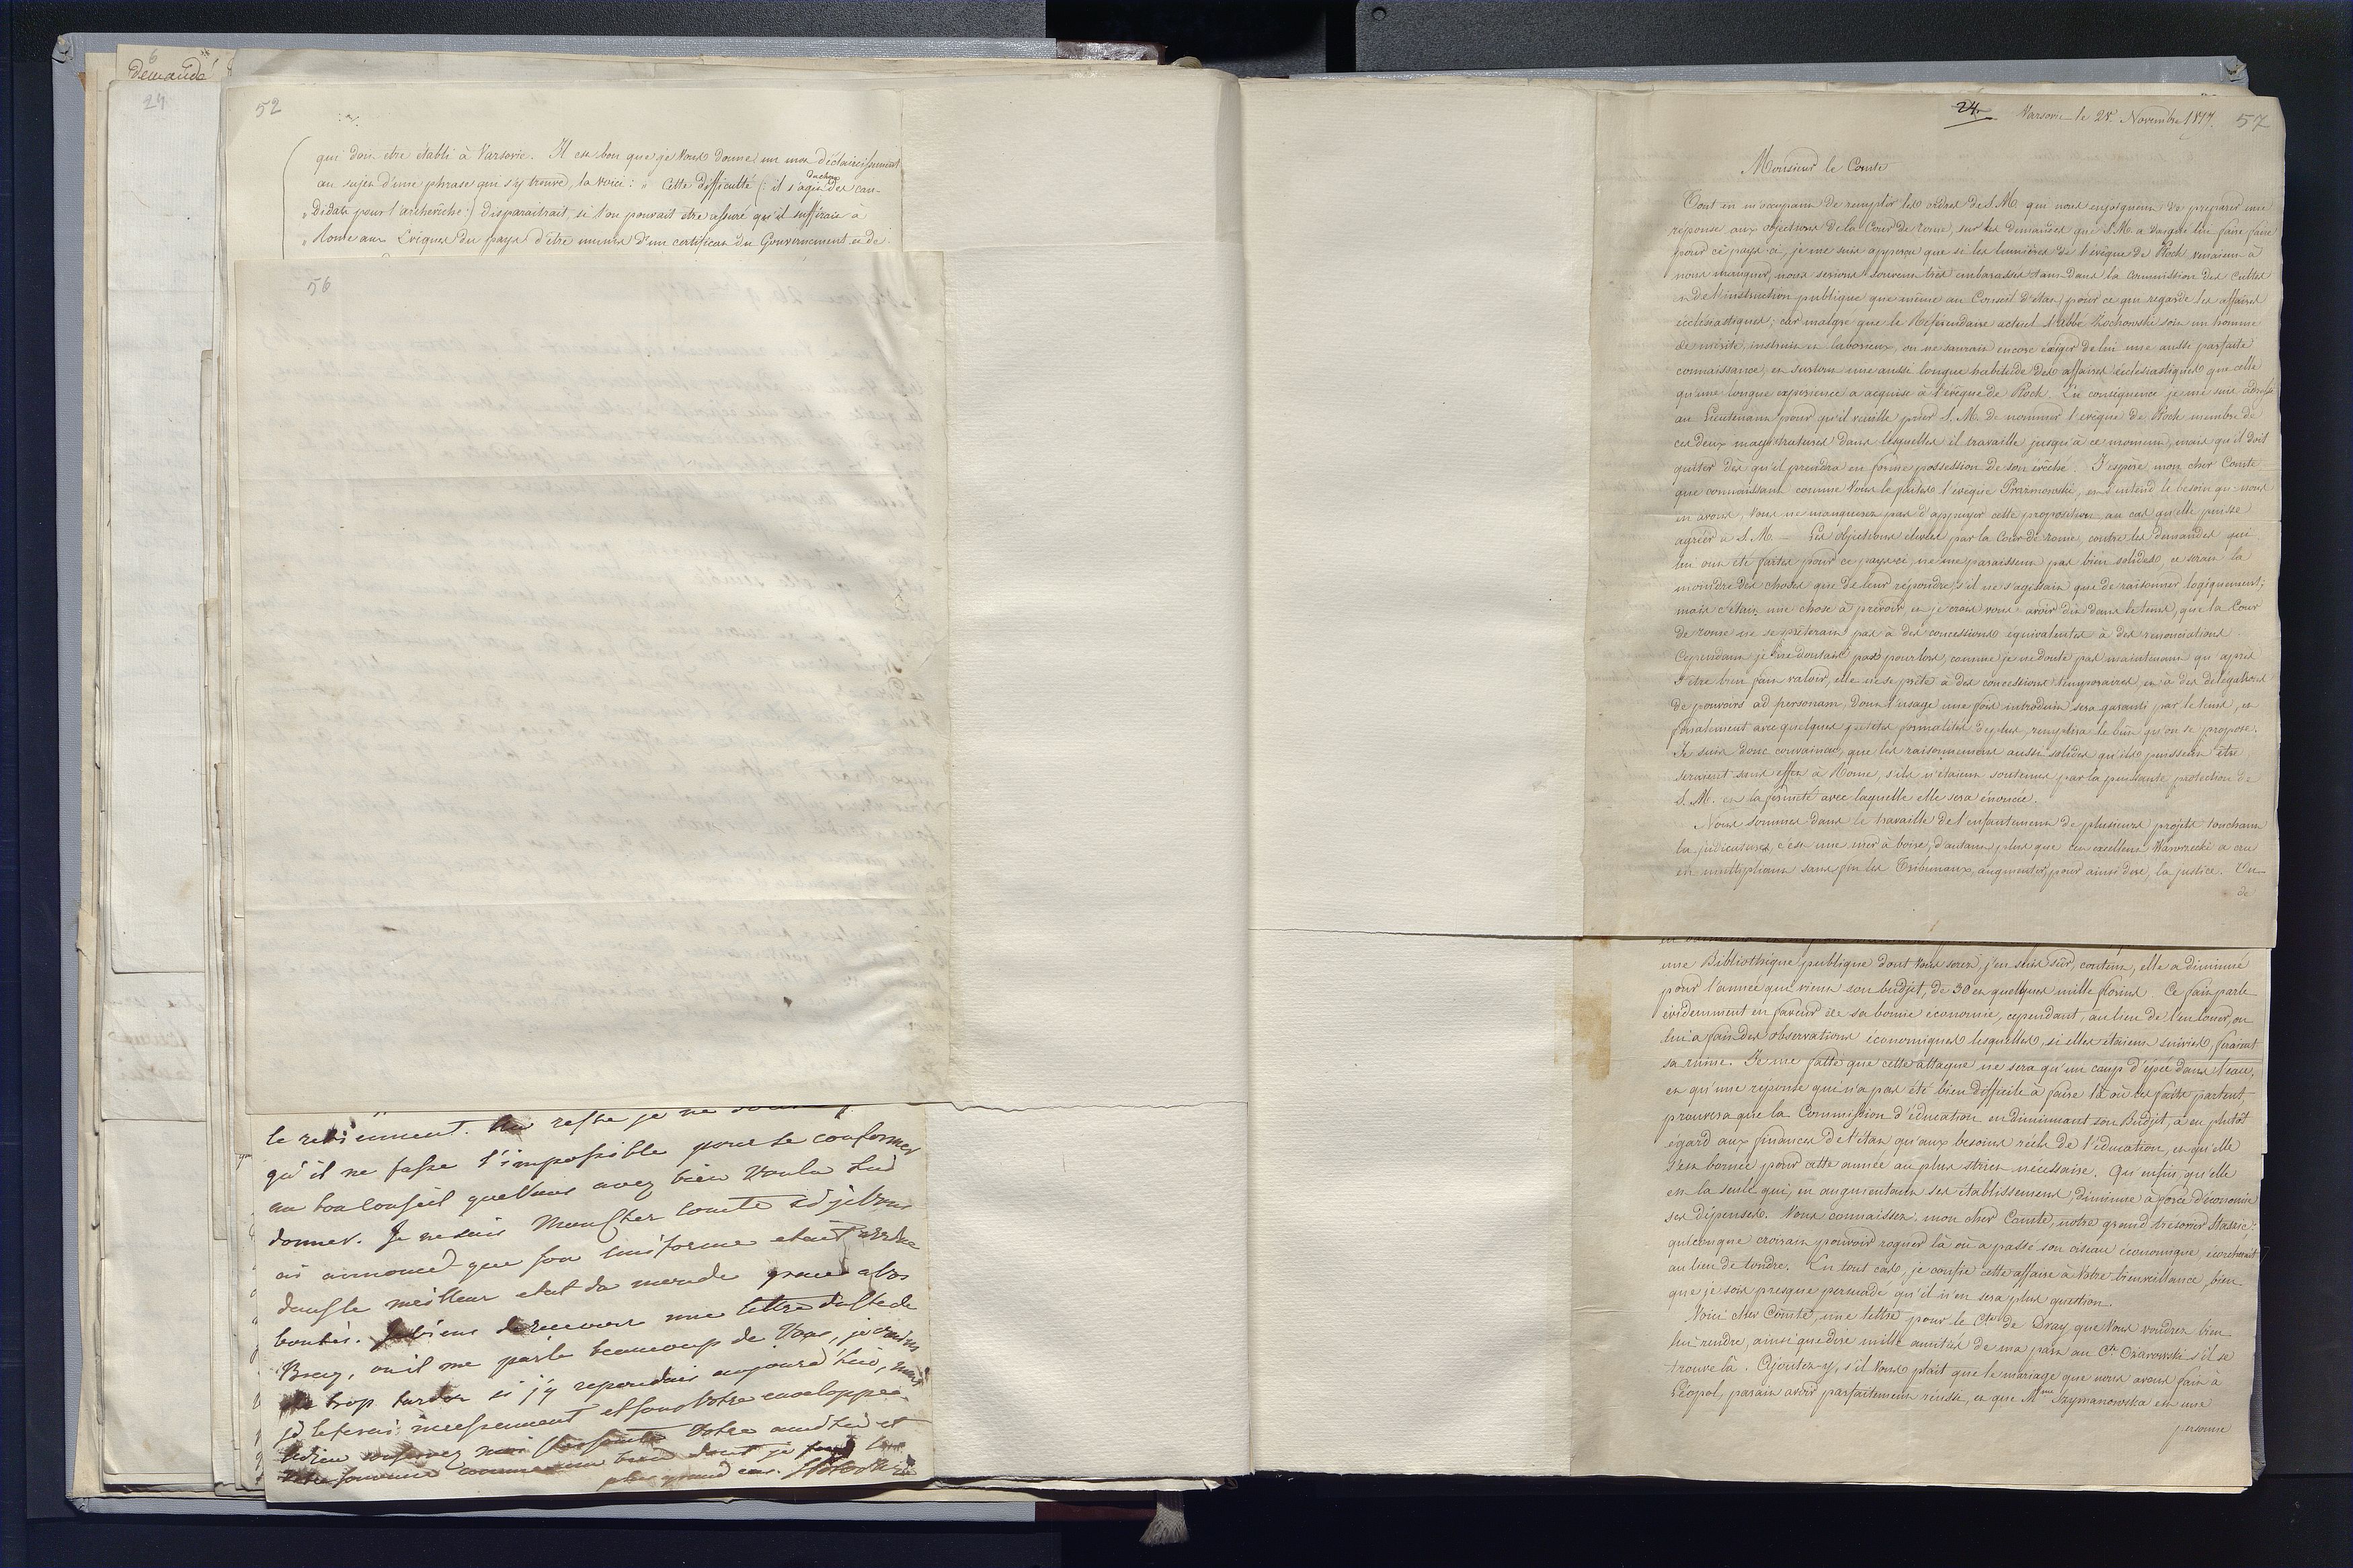 demandé
24
52
qui doit etre établi à Varsovie. Il est bon que je Vous donne un mot d'éclaircissement
au sujet d'une phrase qui s'y trouve, la voici: " Cette difficulté (: il s'agit des can-
" didats pour l'archevêché:) disparaitrait, si l'on pouvait être assuré qu'il suffirait à
" Rome aux Evêques du pays d'être munis d'un certificat du Gouvernement et de
56
le retiennent. Au reste je ne
qu'il ne fasse l'impossible pour se conformer
au bon Conseil que Vous avez bien Voulu lui
donner. Je ne sais Mon Cher Comte si je Vous
ai annoncé que son uniforme etait
dans le meilleur etat du monde grace a Vos
bontés. Je viens de recevoir une lettre de
Bray, où il me parle beaucoup de Vous, je crains
trop tarder si j'y repondais aujourd'hui, mais
je le ferai incessament et sous Votre enveloppe.
Adieu Votre amitié et
Votre souvenir comme un bien dont je fais le
plus grand cas.
24. Varsovie le 28. Novembre 1817. 57
Monsieur le Comte
Tout en m'occupant de remplir les ordres de S. M. qui nous enjoignent de preparer une
réponse aux objections de la Cour de rome, sur les demandes que S. M. a daigné lui faire faire
pour ce pays ci, je me suis apperçu que si les lumières de l'évêque de Plock venaient à
nous manquer, nous serions souvent très embarassés tant dans la Commission des Cultes
et de l'instruction publique que même au Conseil d'état, pour ce qui regarde les affaires
écclésiastiques; car malgré que le Référendaire actuel l'abbé Kochowski soit un homme
de mérite, instruit et laborieux, on ne saurait encore exiger de lui une aussi parfaite
connaissance, et surtout une aussi longue habitude des affaires ecclésiastiques que celle
qu'une longue expérience a acquise à l'évêque de Plock. En conséquence je me suis adressé
au Lieutenant pour qu'il veuille prier S. M. de nommer l'évêque de Plock membre de
ces deux magistratures dans lesquelles il travaille jusqu'à ce moment, mais qu'il doit
quiter dès qu'il prendra en forme possession de son évêché. J'espère, mon cher Comte
que connaissant comme Vous le faites l'évêque Prazmowski, et s'entend le besoin que nous
en avons, Vous ne manquerez pas d'appuyer cette proposition, au cas qu'elle puisse
agréer à S. M. — Les objections élevées par la Cour de rome, contre les demandes qui
lui ont été faites pour ce pays ci, ne me paraissent pas bien solides, ce serait la
moindre des choses que de leur répondre, s'il ne s'agissait que de raisonner logiquement;
mais c'étais une chose à prévoir, et je crois vous avoir dit dans le tems, que la Cour
de rome ne se prêterait pas à des concessions équivalentes à des renonciations.
Cependant je ne doutais pas pour lors, comme je ne doute pas maintenant qu'après
s'être bien fait valoir, elle ne se prête à des concessions temporaires, et à des délégations
de pouvoirs ad personam, dont l'usage une fois introduit sera garanti par le tems, et
finalement avec quelques petites formalités de plus, remplira le but qu'on se propose.
Je suis donc convaincu, que les raisonnemens aussi solides qu'ils puissent être
seraient sans effet à Rome, s'ils n'étaient soutenus par la puissante protection de
S. M. et la fermeté avec laquelle elle sera énoncée.
Nous sommes dans le travaille de l'enfantement de plusieurs projets touchant
la judicature, c'est une mer à boire, d'autant plus que cet excellent Wawrzecki a cru
en multipliant sans fin les Tribunaux, augmenter, pour ainsi dire, la justice. On
de
une Bibliothèque publique dont Vous serez, j'en suis sûr, content, elle a diminué
pour l'année qui vient son budjet, de 30 et quelques mille florins. Ce fait parle
évidemment en faveur de sa bonne économie, cependant, au lieu de l'en louer, on
lui a fait des observations économiques lesquelles, si elles étaient suivies, feraient
sa ruine. Je me flatte que cette attaque ne sera qu'un coup d'épée dans l'eau,
et qu'une reponse qui n'a pas été bien difficile à faire là où les faits parlent,
prouvera que la Commission d'éducation en diminuant son Budjet, a eu plutôt
égard aux finances de l'état qu'aux besoins réels de l'éducation, et qu'elle
s'est bornée pour cette année au plus strict nécessaire. Qu'enfin, qu'elle
est la seule qui, en augmentant ses établissemens, diminue à force d'économie
ses dépenses. Vous connaissez, mon cher Comte, notre grand trésorier Staszic;
quiconque croirait pouvoir rogner là où a passé son ciseau économique, écorcherait
au lieu de tondre. En tout cas, je confie cette affaire à Votre bienveillance, bien
que je sois presque persuadé qu'il n'en sera plus question.
Voici cher Comte, une lettre pour le Cte de Bray, que Vous voudrez bien
lui rendre, ainsi que dire mille amitiés de ma part au Cte Ożarowski s'il se
trouve là. Ajoutez-y, s'il Vous plait que le mariage que nous avons fait à
Léopol, parait avoir parfaitement réussi, et que Mme Szymanowska est une
personne